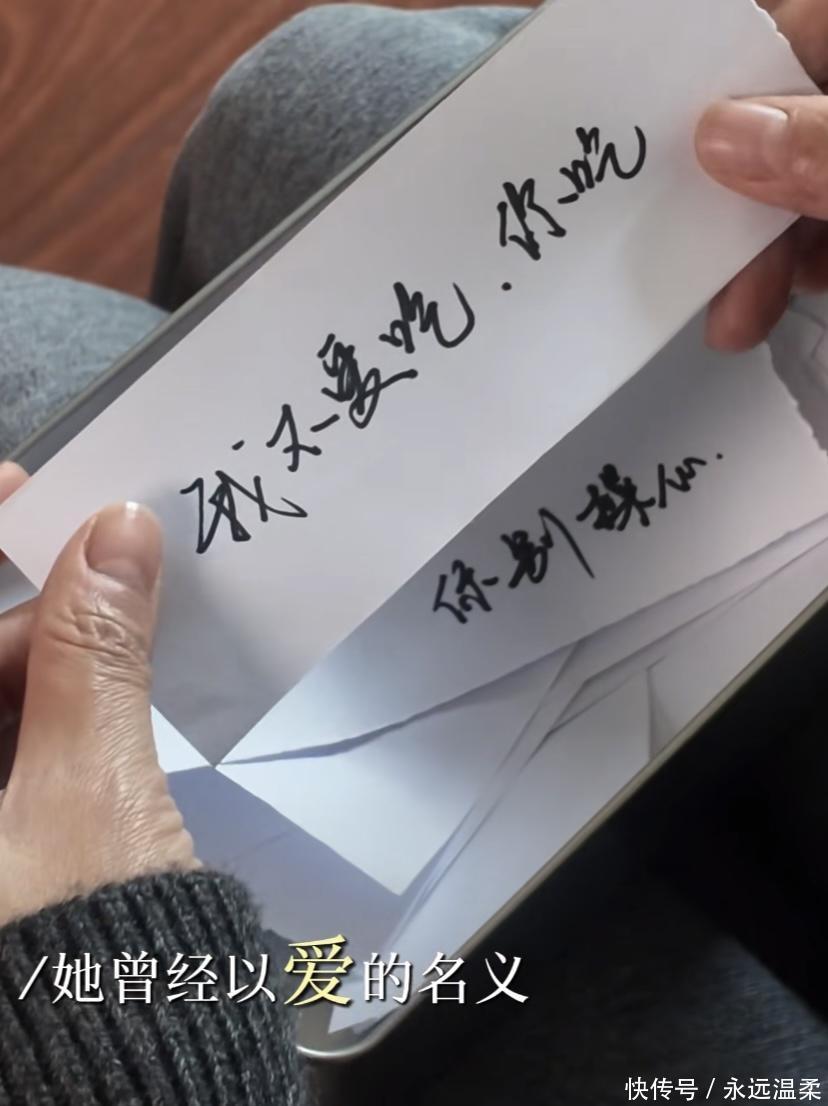 我不要吃.你吃
你别操心.
/她曾经以爱的名义
快传号/永远温柔